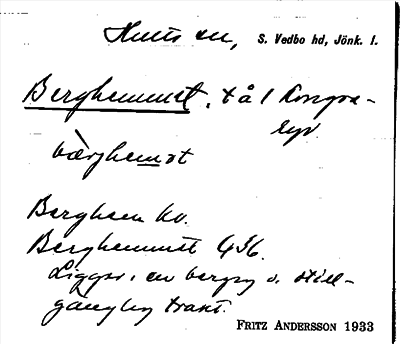 Hults sn, S. Vedbo hd, Jönk. l.
Berghemmet, t å l Kongsa-
ryd
bærghemət
Berghem kv.
Berghemmet 436.
Ligger i en bergig o. otill-
gänglig trakt.
FRITZ ANDERSSON 1933